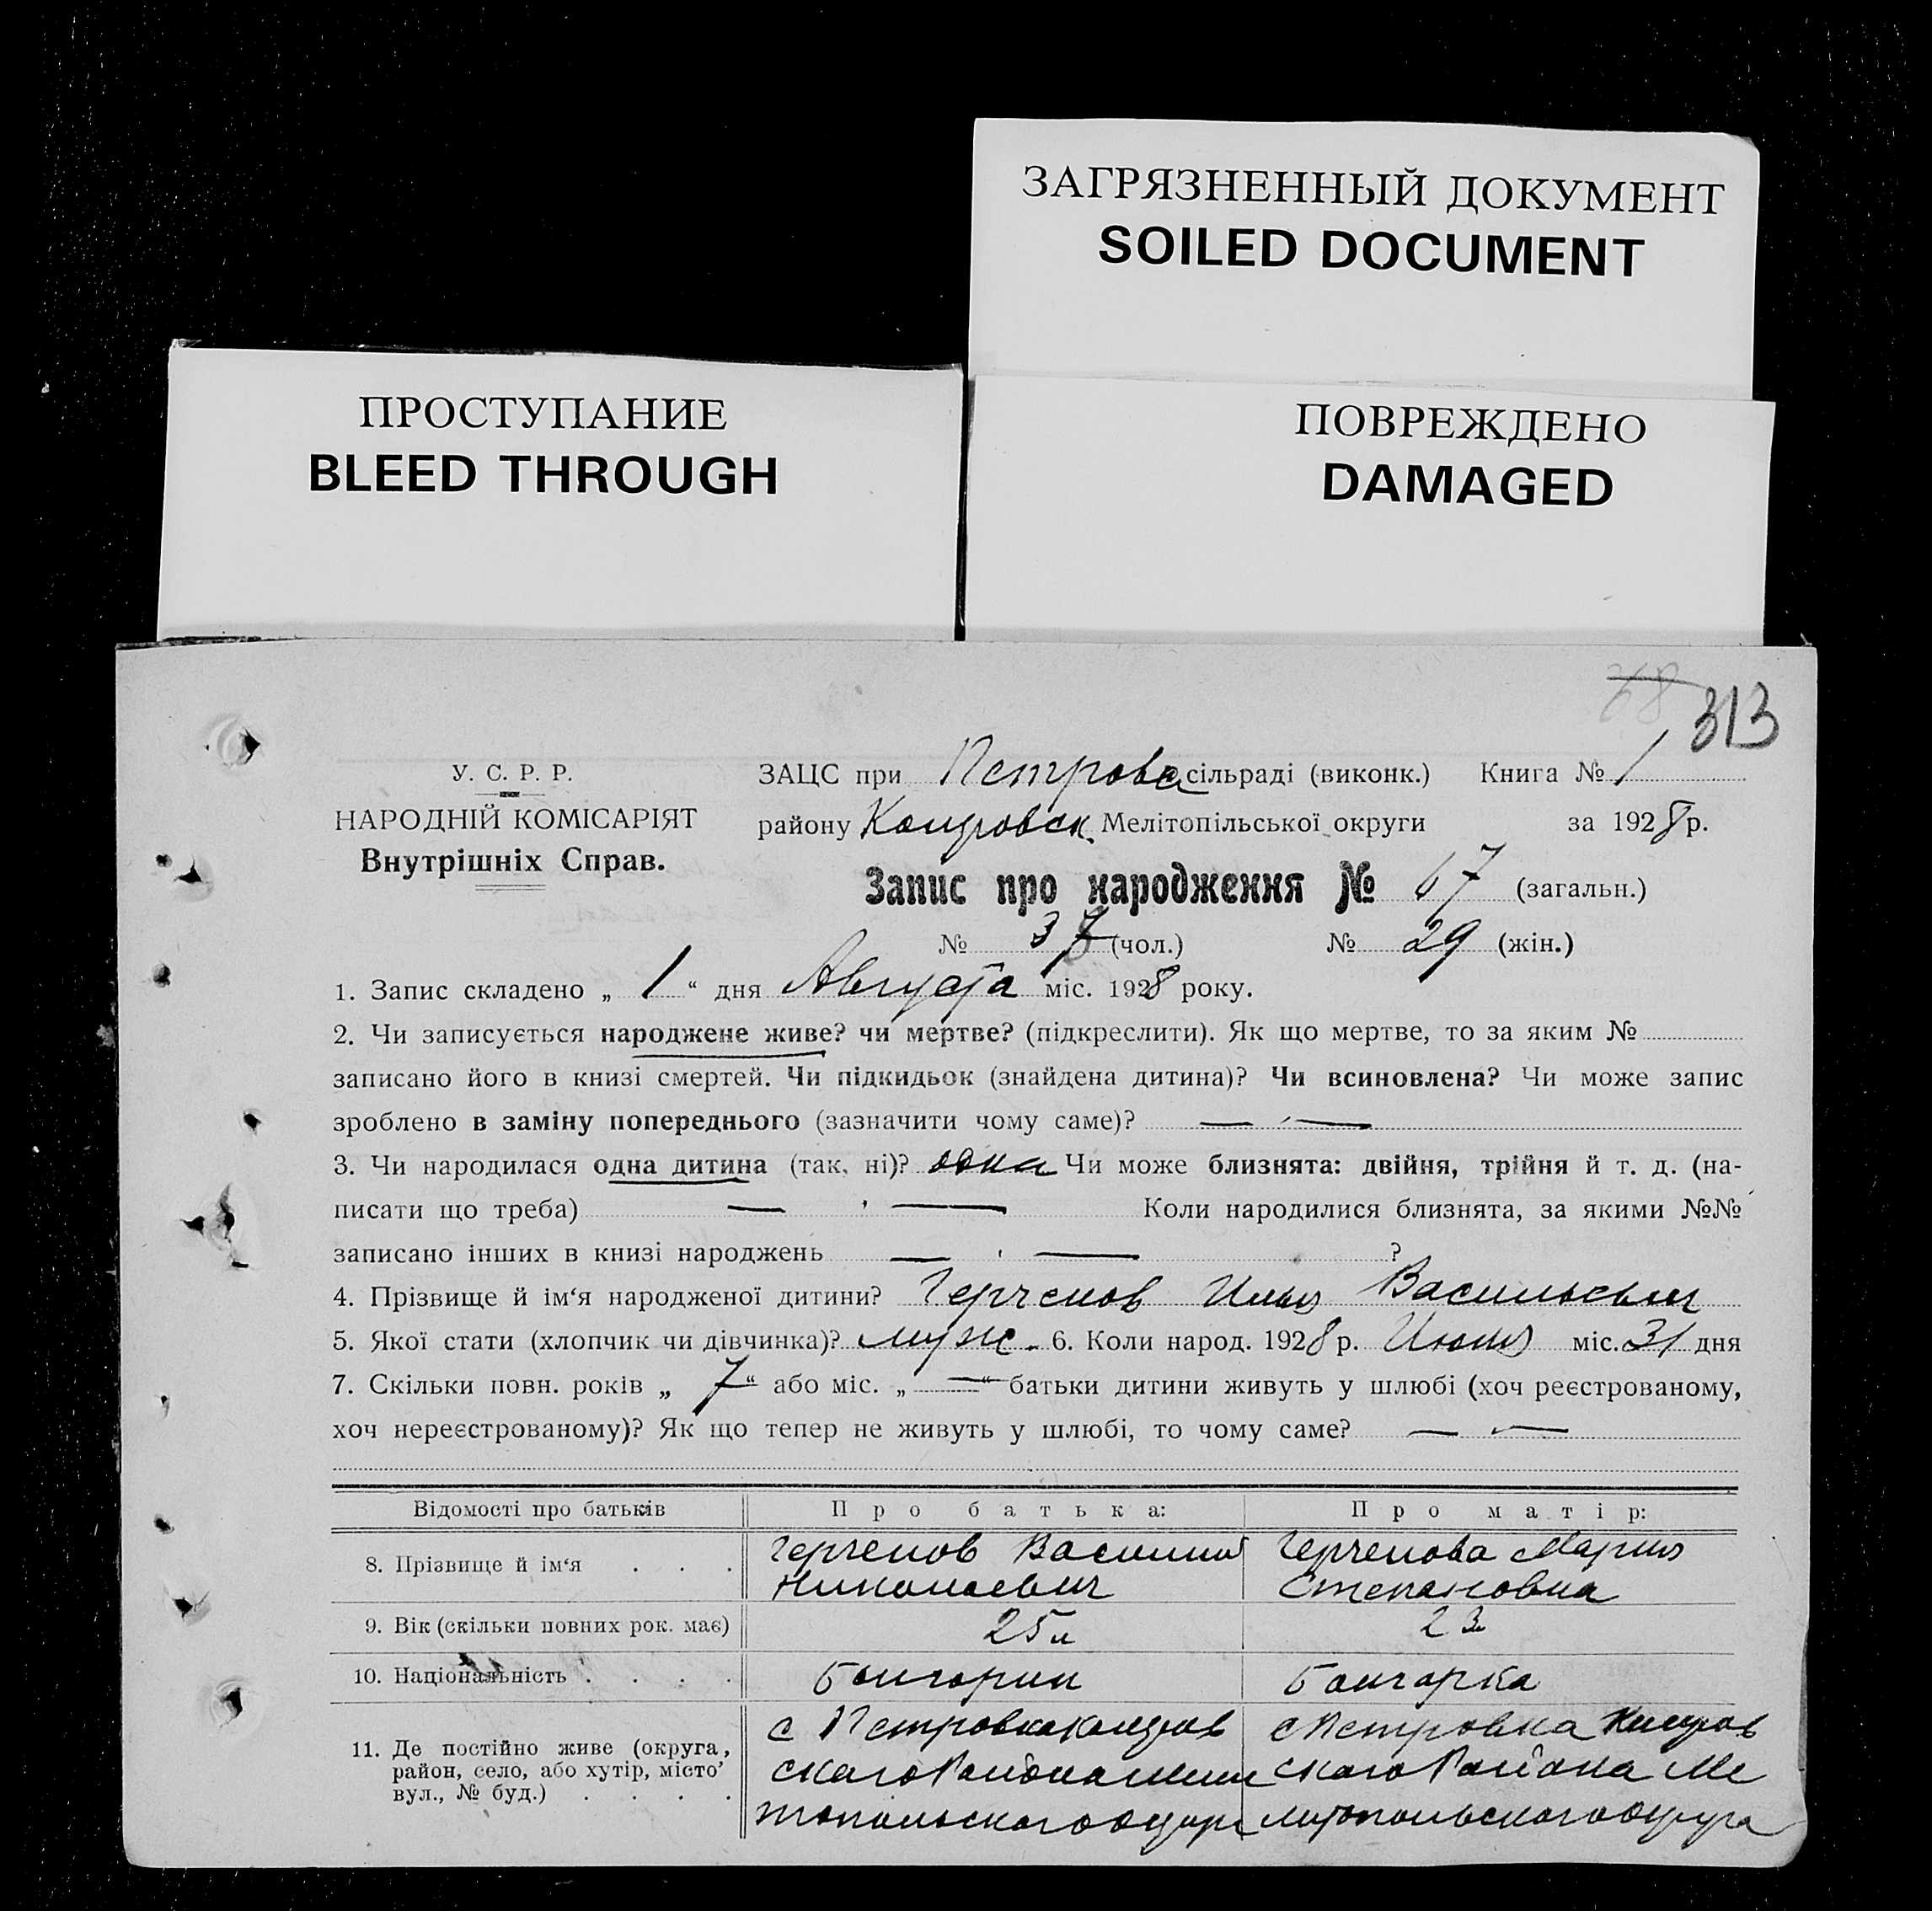 ЗАГРЯЗНЕННЫЙ ДОКУМЕНТ
SOILED DOCUMENT
ПРОСТУПАНИЕ
BLEED THROUGH
ПОВРЕЖДЕНО
DAMAGED
68 313
У. С. Р. Р.
НАРОДНІЙ КОМІСАРІЯТ
Внутрішніх Справ.
ЗАЦС при Петровс сільраді (виконк.) Книга № 1
району Коларовск. Мелітопільської округи за 1928 р.
Запис про народження № 67 (загальн.)
№ 37 (чол.) № 29 (жін.)
1. Запис складено „ 1 “ дня Августа міс. 1928 року.
2. Чи записується народжене живе? чи мертве? (підкреслити). Як що мертве, то за яким №
записано його в книзі смертей. Чи підкидьок (знайдена дитина)? Чи всиновлена? Чи може запис
зроблено в заміну попереднього (зазначити чому саме)? — —
3. Чи народилася одна дитина (так, ні)? одна Чи може близнята: двійня, трійня й т. д. (на-
писати що треба) — — Коли народилися близнята, за якими №№
записано інших в книзі народжень — — ?
4. Прізвище й ім‘я народженої дитини? Герченов Илья Васильевич
5. Якої стати (хлопчик чи дівчинка)? муж. 6. Коли народ. 1928 р. Июля міс. 31 дня
7. Скільки повн. років „ 7 “ або міс. „ — “ батьки дитини живуть у шлюбі (хоч реєстрованому,
хоч нереєстрованому)? Як що тепер не живуть у шлюбі, то чому саме? — —
Відомості про батьків Про батька: Про матір:
8. Прізвище й ім‘я . . . Герченов Василий Николаевич Герченова Мария Степановна
9. Вік (скільки повних рок. має) 25 л 23
10. Національність . . . . Болгарин Болгарка
11. Де постійно живе (округа,
район, село, або хутір, місто’
вул., № буд.) . . . .
с Петровка Коларов
ского Района Мели
топольского округа
с Петровка Коларов
ского Района Ме
литопольского округа